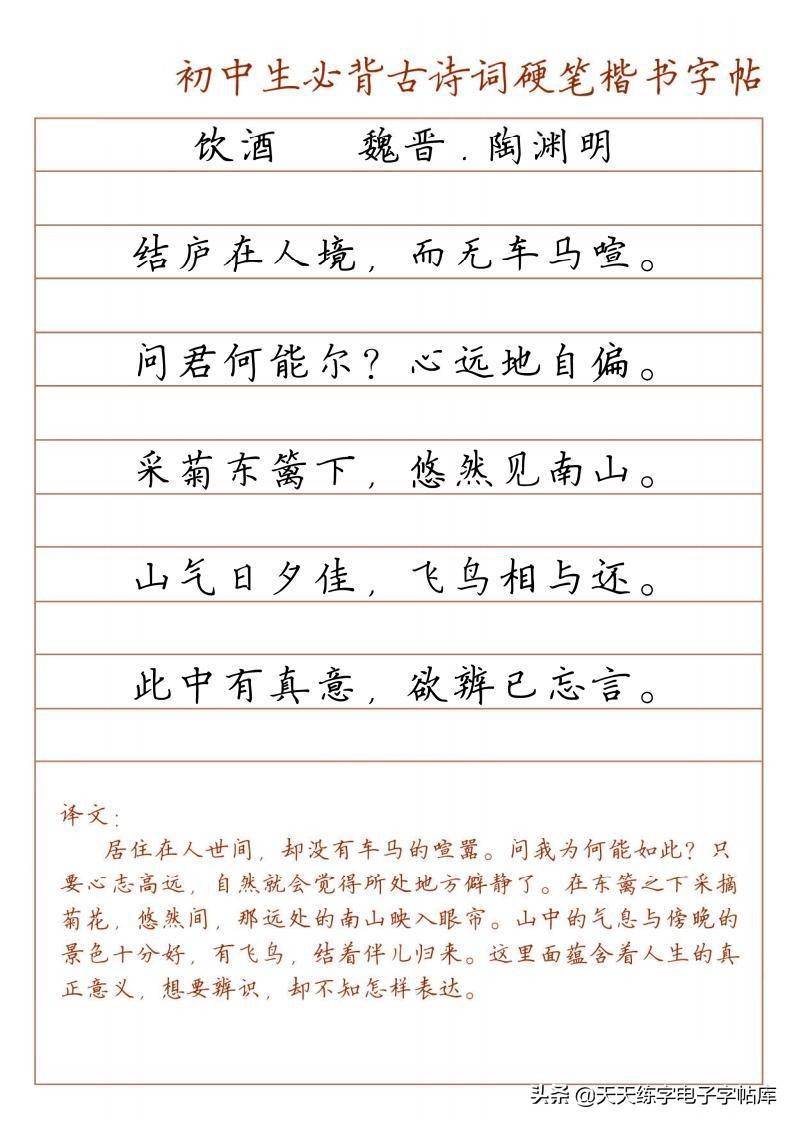 初中生必背古诗词硬笔楷书字帖
饮酒 魏晋.陶渊明
结庐在人境，而无车马喧。
问君何能尔？心远地自偏。
采菊东篱下，悠然见南山。
山气日夕佳，飞鸟相与还。
此中有真意，欲辨已忘言。
译文：
居住在人世间，却没有车马的喧嚣。问我为何能如此？只
要心志高远，自然就会觉得所处地方僻静了。在东篱之下采摘
菊花，悠然间，那远处的南山映入眼帘。山中的气息与傍晚的
景色十分好，有飞鸟，结着伴儿归来。这里面蕴含着人生的真
正意义，想要辨识，却不知怎样表达。
头条 @天天练字电子字帖库